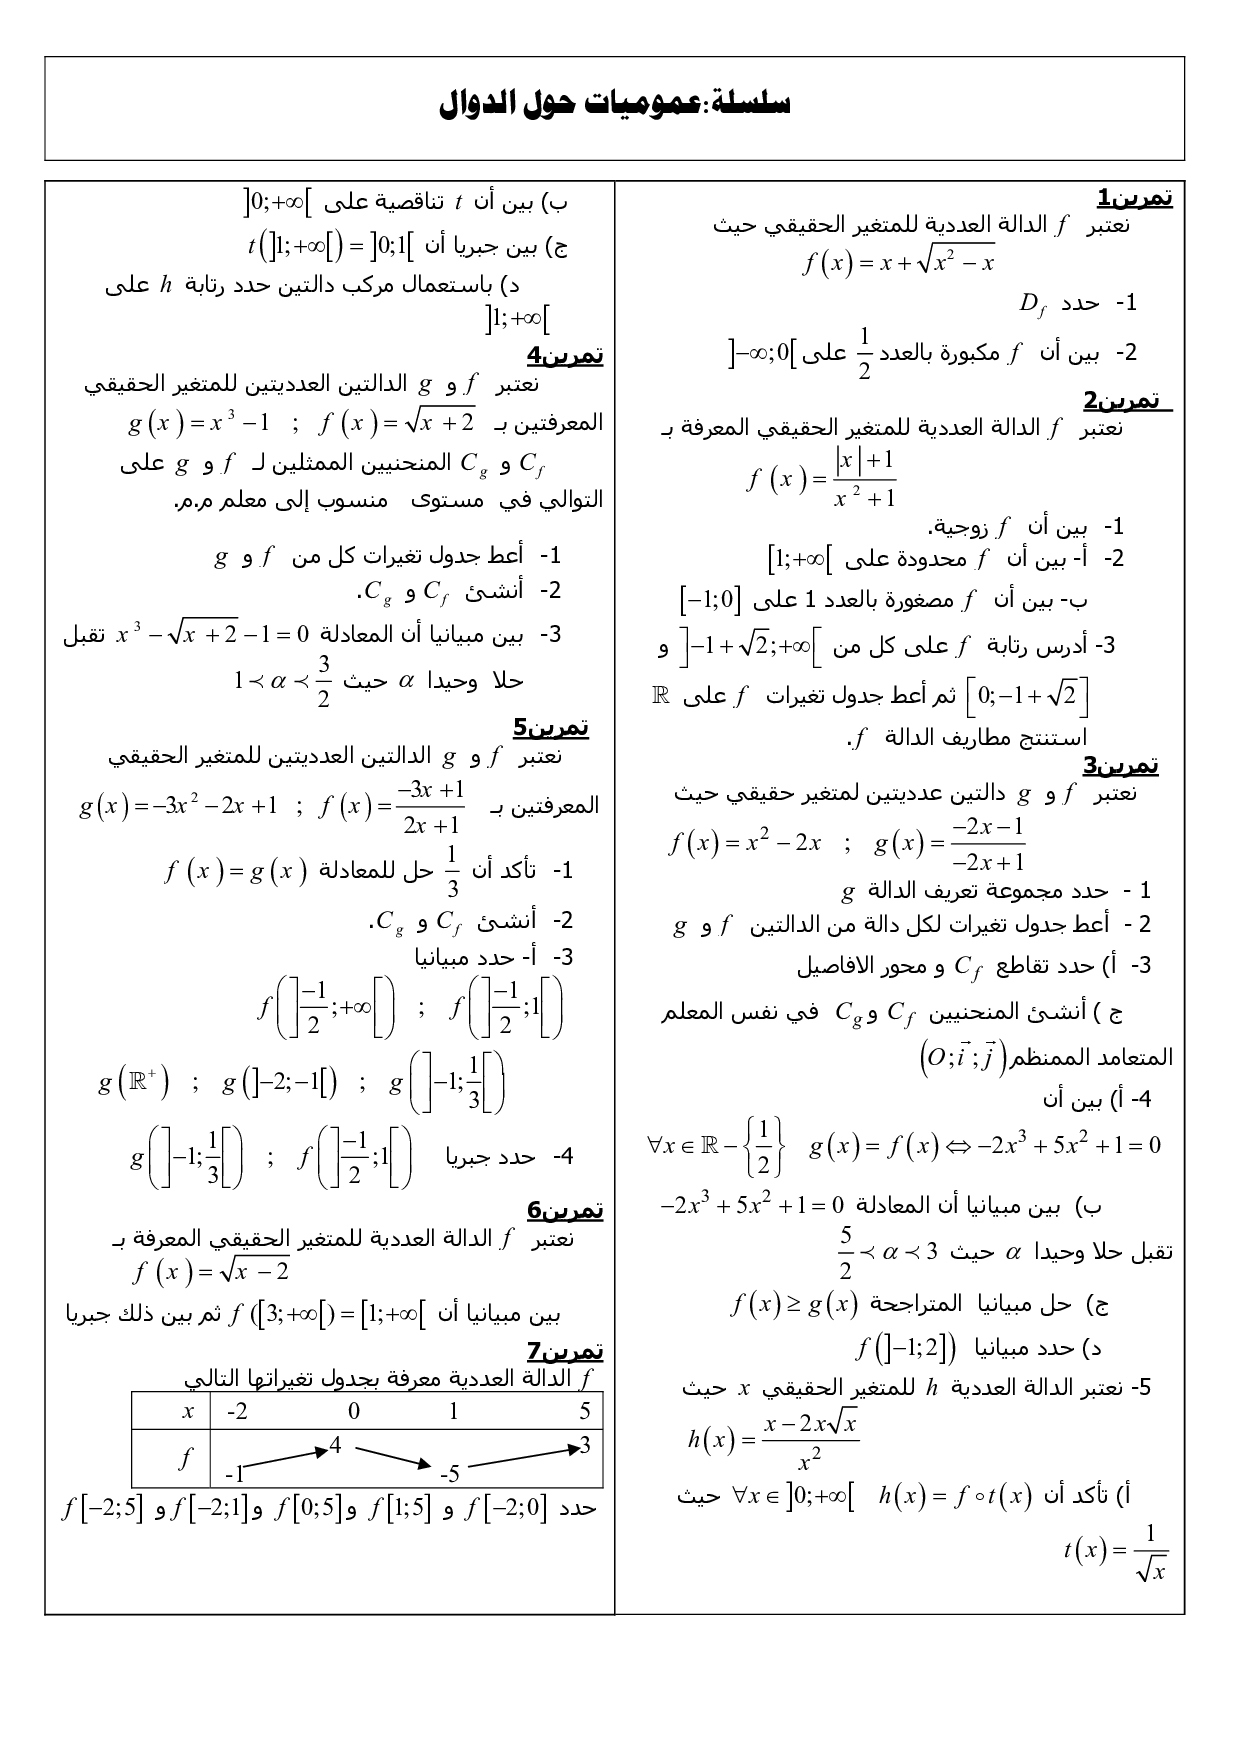 سلسلة:عموميات حول الدوال
تمرين1
نعتبر f الدالة العددية للمتغير الحقيقي حيث
f(x) = x + √(x² − x)
1- حدد D_f
2- بين أن f مكبورة بالعدد 1/2 على ]−∞;0[
تمرين2
نعتبر f الدالة العددية للمتغير الحقيقي المعرفة بـ
f(x) = (|x| + 1)/(x² + 1)
1- بين أن f زوجية.
2- أ- بين أن f محدودة على [1;+∞[
ب- بين أن f مصغورة بالعدد 1 على [−1;0]
3- أدرس رتابة f على كل من ]−1 + √2;+∞[ و
[0;−1 + √2] ثم أعط جدول تغيرات f على ℝ
استنتج مطاريف الدالة f.
تمرين3
نعتبر f و g دالتين عدديتين لمتغير حقيقي حيث
f(x) = x² − 2x ; g(x) = (−2x − 1)/(−2x + 1)
1 - حدد مجموعة تعريف الدالة g
2 - أعط جدول تغيرات لكل دالة من الدالتين f و g
3- أ) حدد تقاطع C_f و محور الافاصيل
ج ) أنشئ المنحنيين C_f و C_g في نفس المعلم
المتعامد الممنظم (O;i⃗;j⃗)
4- أ) بين أن
∀x ∈ ℝ − {1/2} g(x) = f(x) ⇔ −2x³ + 5x² + 1 = 0
ب) بين مبيانيا أن المعادلة −2x³ + 5x² + 1 = 0
تقبل حلا وحيدا α حيث 5/2 ≺ α ≺ 3
ج) حل مبيانيا المتراجحة f(x) ≥ g(x)
د) حدد مبيانيا f(]−1;2])
5- نعتبر الدالة العددية h للمتغير الحقيقي x حيث
h(x) = (x − 2x√x)/x²
أ) تأكد أن ∀x ∈ ]0;+∞[ h(x) = f ∘ t(x) حيث
t(x) = 1/√x
ب) بين أن t تناقصية على ]0;+∞[
ج) بين جبريا أن t(]1;+∞[) = ]0;1[
د) باستعمال مركب دالتين حدد رتابة h على
]1;+∞[
تمرين4
نعتبر f و g الدالتين العدديتين للمتغير الحقيقي
المعرفتين بـ g(x) = x³ − 1 ; f(x) = √(x + 2)
C_f و C_g المنحنيين الممثلين لـ f و g على
التوالي في مستوى منسوب إلى معلم م.م.
1- أعط جدول تغيرات كل من f و g
2- أنشئ C_f و C_g.
3- بين مبيانيا أن المعادلة x³ − √(x + 2) − 1 = 0 تقبل
حلا وحيدا α حيث 1 ≺ α ≺ 3/2
تمرين5
نعتبر f و g الدالتين العدديتين للمتغير الحقيقي
المعرفتين بـ g(x) = −3x² − 2x + 1 ; f(x) = (−3x + 1)/(2x + 1)
1- تأكد أن 1/3 حل للمعادلة f(x) = g(x)
2- أنشئ C_f و C_g.
3- أ- حدد مبيانيا
f(]−1/2;+∞[) ; f(]−1/2;1[)
g(ℝ⁺) ; g(]−2;−1[) ; g(]−1;1/3[)
4- حدد جبريا g(]−1;1/3[) ; f(]−1/2;1[)
تمرين6
نعتبر f الدالة العددية للمتغير الحقيقي المعرفة بـ
f(x) = √(x − 2)
بين مبيانيا أن f([3;+∞[) = [1;+∞[ ثم بين ذلك جبريا
تمرين7
f الدالة العددية معرفة بجدول تغيراتها التالي
x -2 0 1 5
f -1 4 -5 3
حدد f[−2;0] و f[1;5] و f[0;5] و f[−2;1] و f[−2;5]